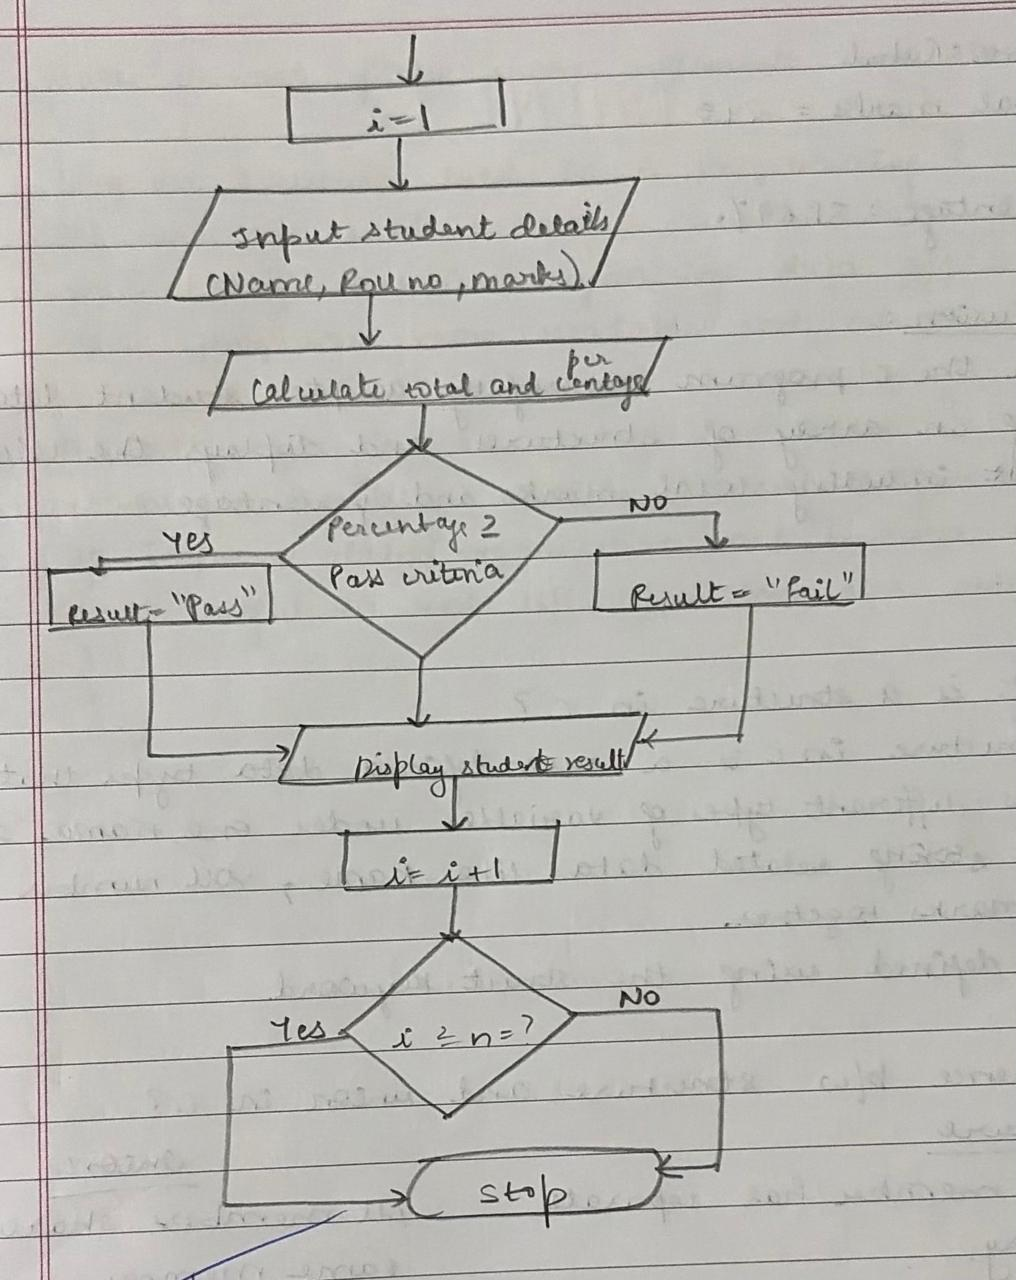 i=1
Input student details
(Name, Roll no, marks)
per
Calculate total and centage
Percentage ≥
Pass criteria
Yes
NO
Result = "Pass"
Result = "Fail"
Display students result
i= i+1
i ≥ n=?
Yes
NO
Stop